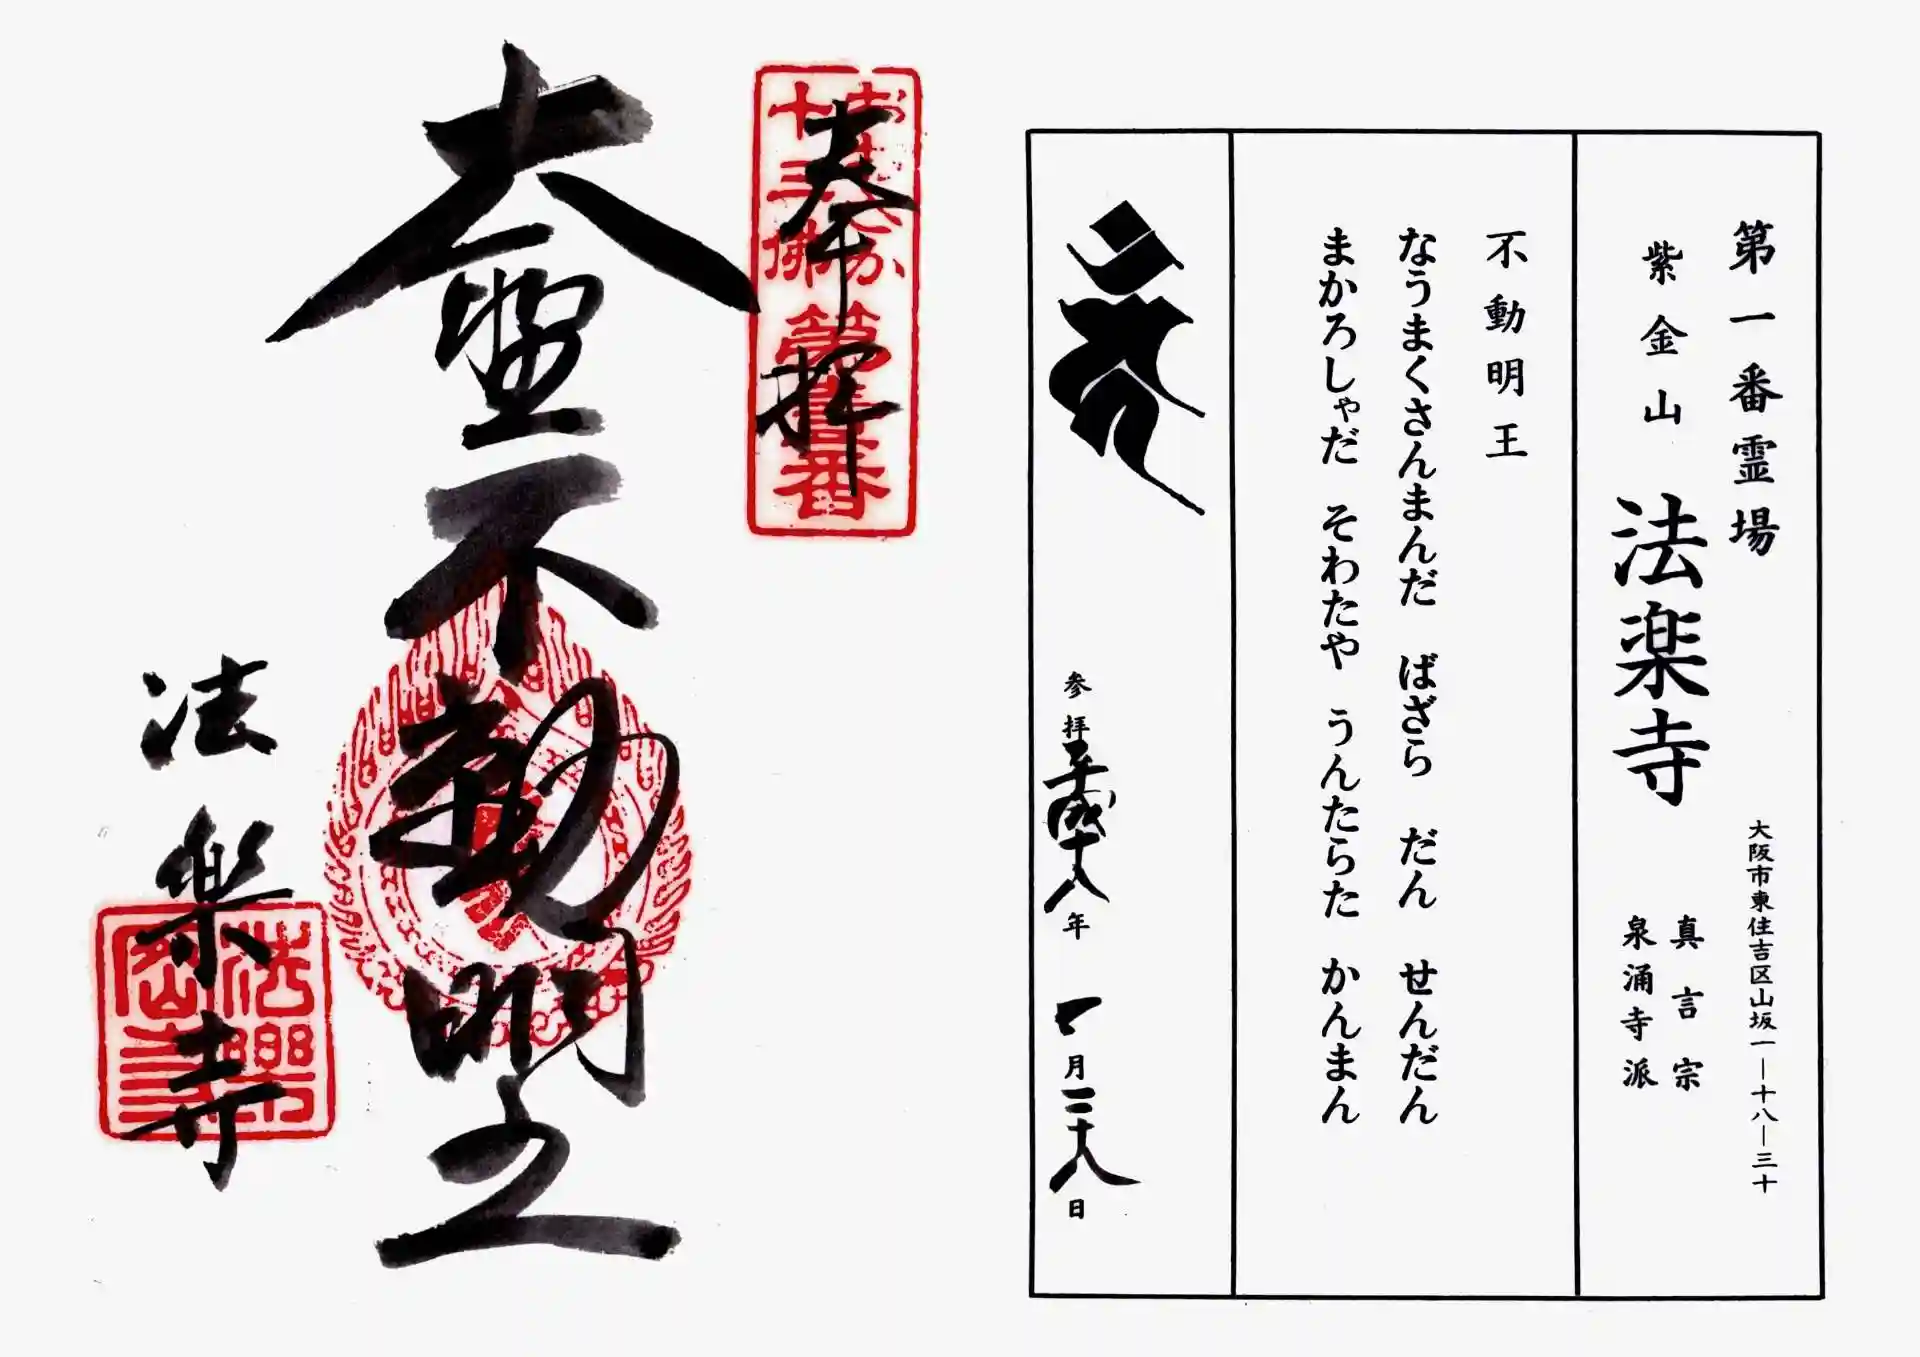 第一番霊場
紫金山 法楽寺
大阪市東住吉区山坂一ー十八ー三十
真言宗
泉涌寺派
不動明王
なうまくさんまんだ ばざら だん せんだん
まかろしゃだ そわたや うんたらた かんまん
参拝平成十八年 一月二十八日
おおさか
十三佛
第壹番
奉拝
大聖不動明王
法樂寺
法樂寺